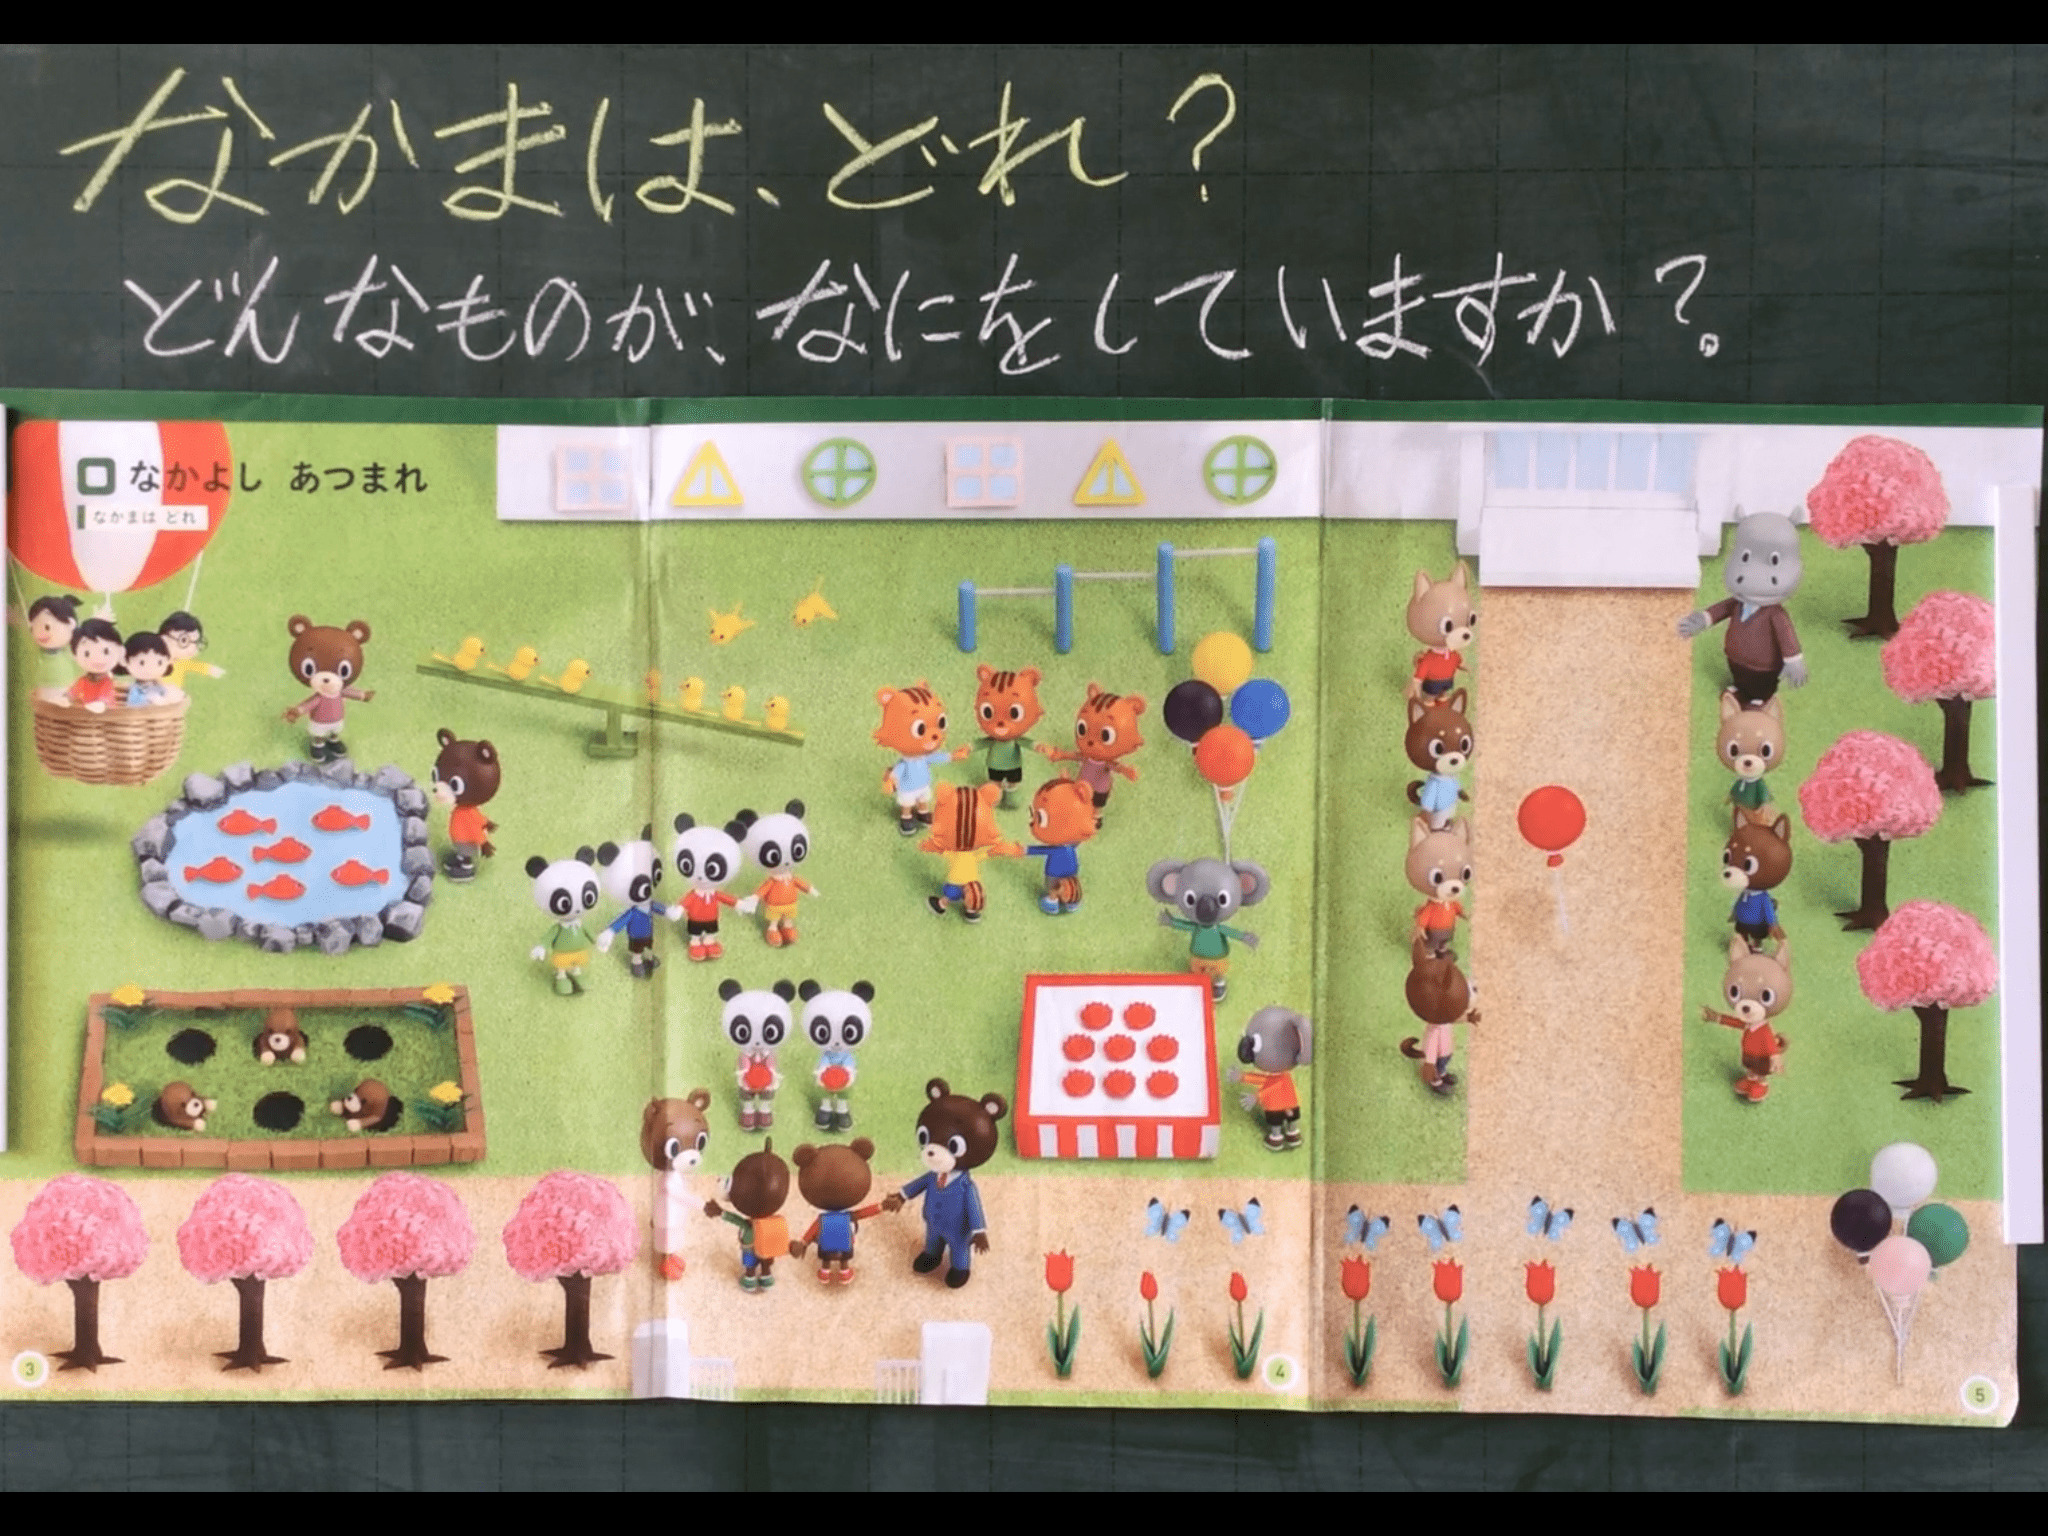 なかまは、どれ?
どんなものが、なにをしていますか?
なかよし あつまれ
なかまは どれ
3
4
5